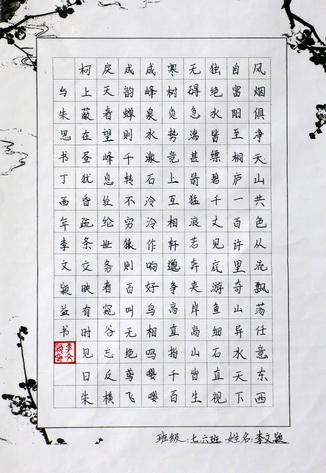 风烟俱净天山共色从流飘荡任意东西
自富阳至桐庐一百许里奇山异水天下
独绝水皆缥碧千丈见底游鱼细石直视
无碍急湍甚箭猛浪若奔夹岸高山皆生
寒树负势竞上互相轩邈争高直指千百
成峰泉水激石泠泠作响好鸟相鸣嘤嘤
成韵蝉则千转不穷猿则百叫无绝鸢飞
戾天者望峰息经纶世务者窥谷忘反横
柯上蔽在昼犹昏疏条交映有时见日朱
与朱思书丁酉年李文颖益书
班级:七六班 姓名:李文颖